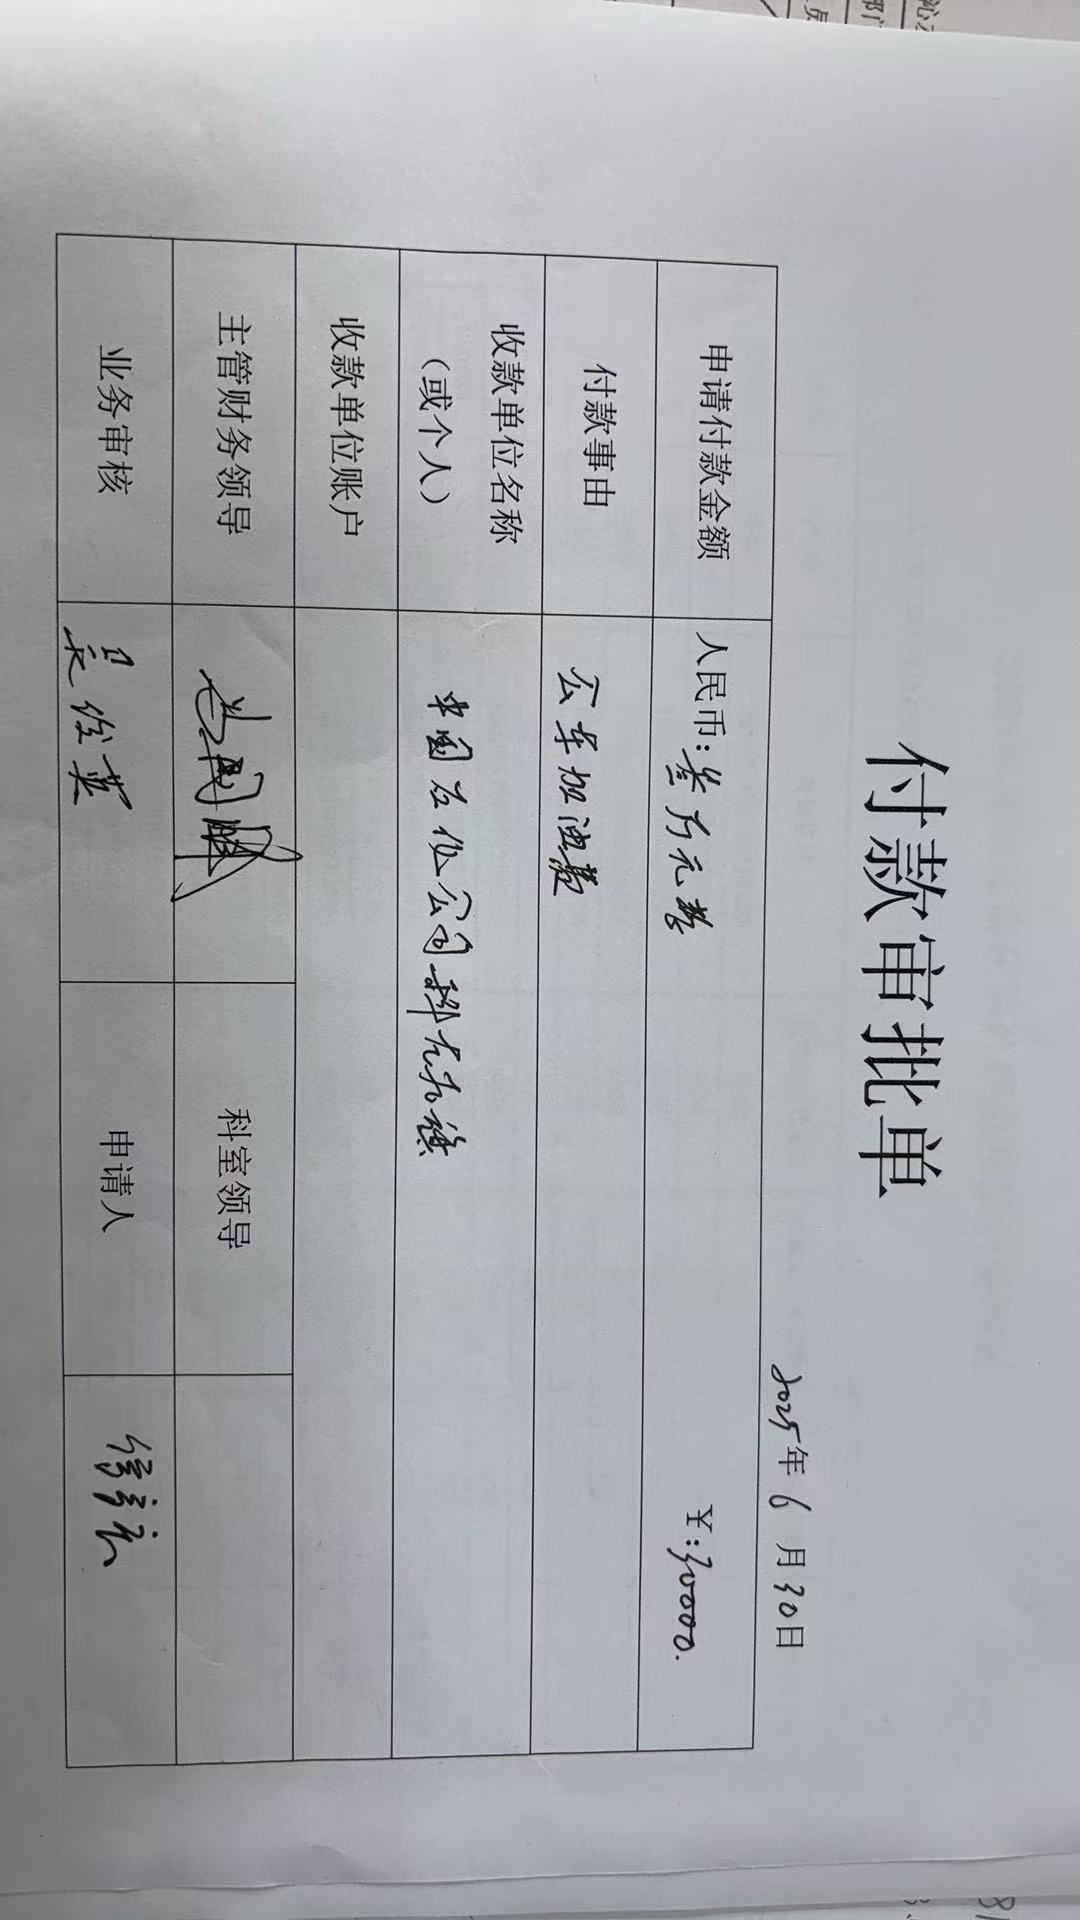 付款审批单
2025年6月30日
申请付款金额 人民币：叁万元整 ￥：30000.
付款事由 公车加油费
收款单位名称（或个人） 中国石化公司
收款单位账户
主管财务领导 科室领导
业务审核 吴俊英 申请人